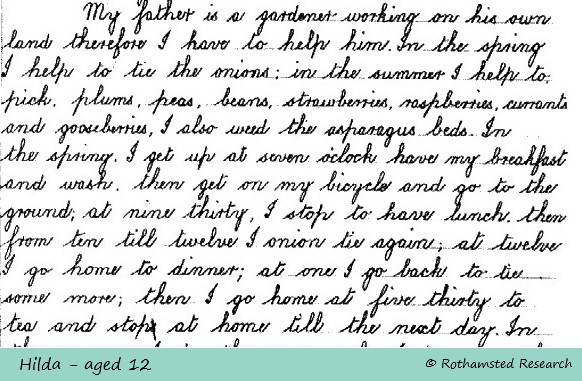 My father is a gardener working on his own
land therefore I have to help him. In the spring
I help to tie the onions; in the summer I help to
pick. plums, peas, beans, strawberries, raspberries, currants
and gooseberries, I also weed the asparagus beds. In
the spring. I get up at seven o'clock have my breakfast
and wash. then get on my bicycle and go to the
ground; at nine thirty, I stop to have lunch. then
from ten till twelve I onion tie again; at twelve
I go home to dinner; at one I go back to tie
some more; then I go home at five thirty to
tea and stop at home till the next day. In
Hilda - aged 12
© Rothamsted Research